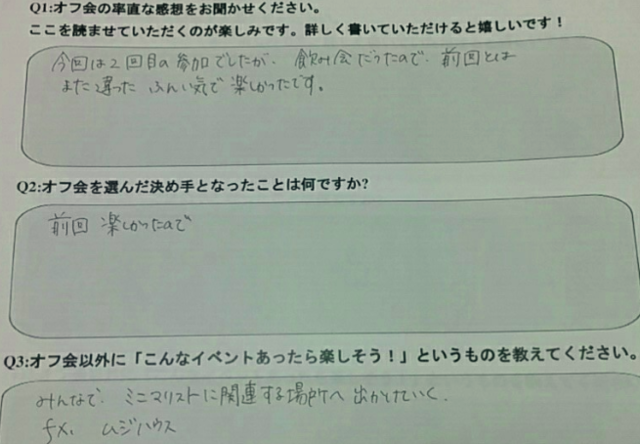 Q1:オフ会の率直な感想をお聞かせください。
ここを読ませていただくのが楽しみです。詳しく書いていただけると嬉しいです！
今回は2回目の参加でしたが、飲み会だったので、前回とは
また違った ふんい気で 楽しかったです。
Q2:オフ会を選んだ決め手となったことは何ですか?
前回 楽しかったので
Q3:オフ会以外に「こんなイベントあったら楽しそう！」というものを教えてください。
みんなで、ミニマリストに関連する場所へ 出かけていく。
fx, ムジハウス